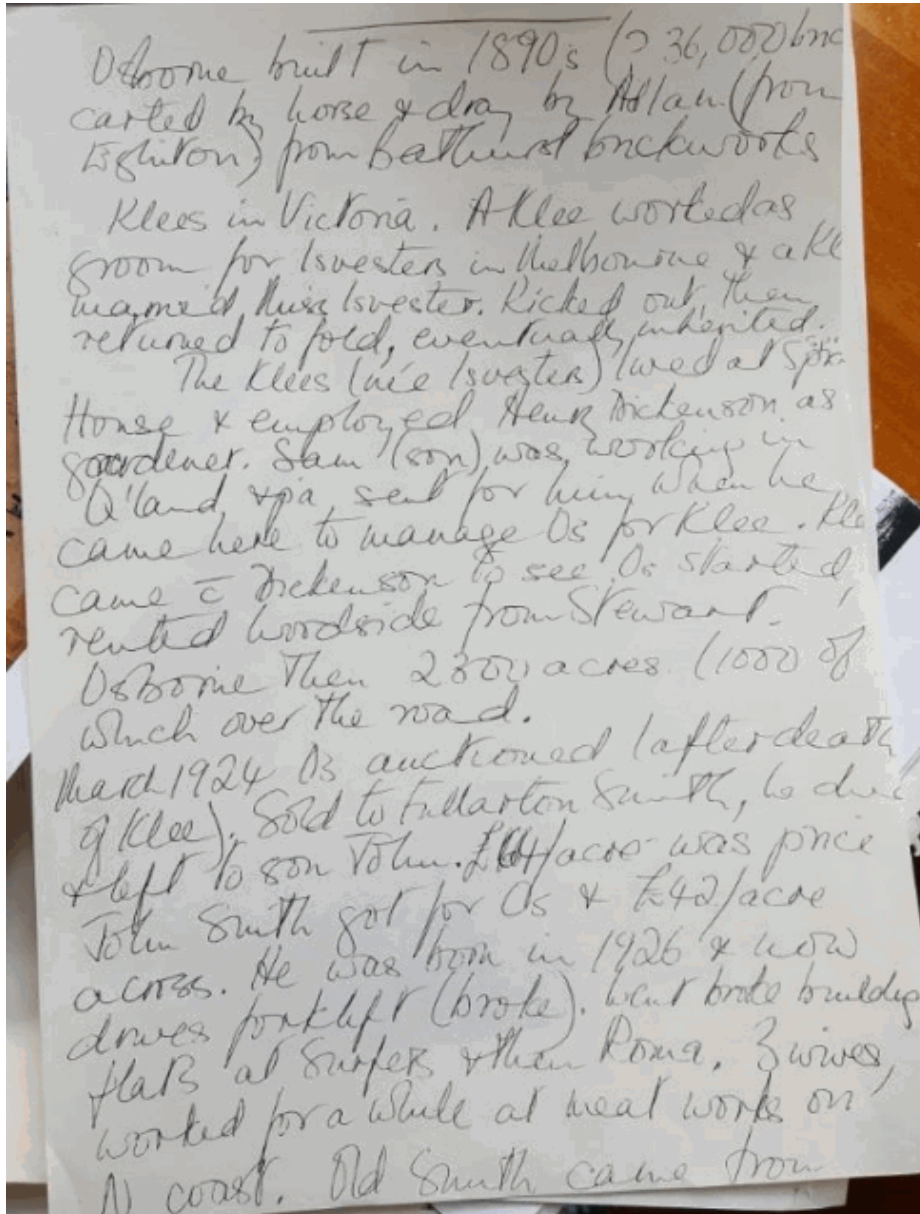 Osborne built in 1890's (? 36,000 bric
carted by horse & dray by Allan (from
Eglinton) from Bathurst brickworks
Klees in Victoria. A Klee worked as
groom for Isvesters in Melbourne & a Kl
married Miss Isvester. Kicked out, then
returned to fold, eventually inherited.
The Klees (née Isvester) lived at Spri
House & employed Henry Dickenson as
gardener. Sam (son) was working in
Q'land, & pa sent for him when he
came here to manage Os for Klee. Kle
came c̄ Dickenson to see Os started
rented Woodside from Stewart.
Osborne then 2300 acres (1000 of
which over the road.
March 1924 Os auctioned (after death
of Klee). Sold to Fullarton Smith, who die
& left to son John. /acre was price
John Smith got for Os & £42/acre
across. He was born in 1926 & now
drives forklift (broke). Went broke building
flats at Surfers & then Roma. 3 wives,
worked for a while at meat works on
N coast. Old Smith came from